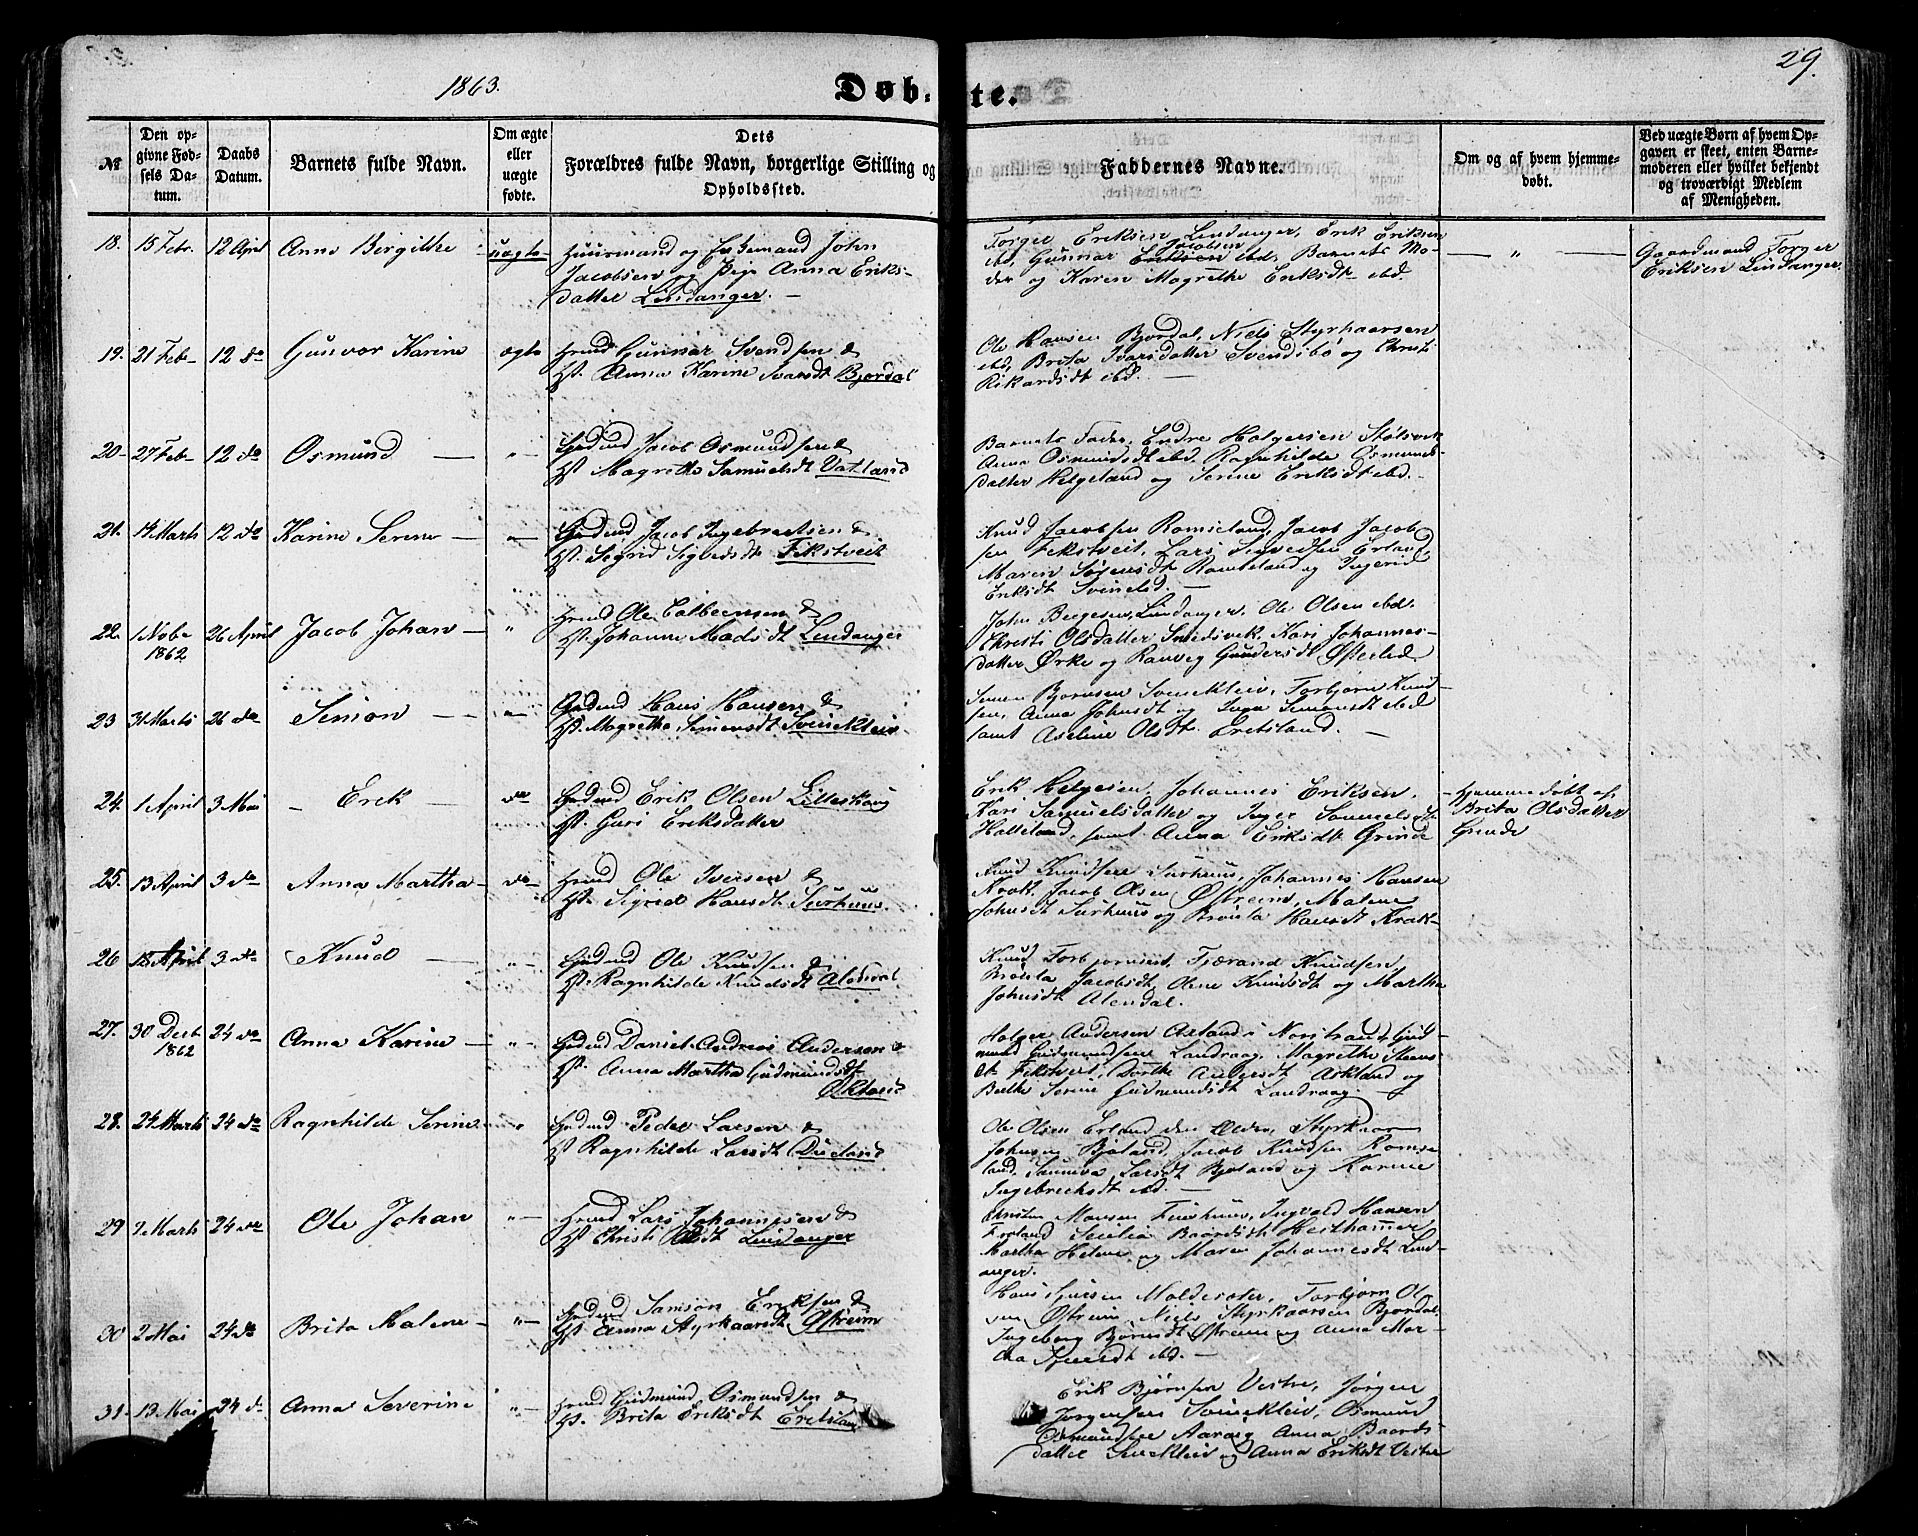 29.
1863.
Døb-te.
№
Den op-
givne Fød-
sels Da-
tum.
Daabs
Datum.
Barnets fulde Navn.
Om ægte
eller
uægte
fødte.
Dets
Forældres fulde Navn, borgerlige Stilling og
Opholdssted.
Faddernes Navne.
Om og af hvem hjemme-
døbt.
Ved uægte Børn af hvem Op-
gaven er skeet, enten Barne-
moderen eller hvilket bekjendt
og troværdigt Medlem
af Menigheden.
18. 15 Febr. 12 April Anne Birgitte uægte
Huusmand og Enkemand John
Jacobsen og Pige Anna Eriks-
datter Lindanger. —
Torger Eriksen Lindanger, Erik Eriksen
ibd, Gunnar Jacobsen ibd. Barnets Mo-
der og Karen Magrethe Eriksdt ibd.
— " —
Gaardmand Torger
Eriksen Lindanger.
19. 21 Feb 12 do Gunvor Karine ægte
Hmd Gunnar Svendsen &
Hst. Anna Karine Ivarsdt Bjordal
Ole Hansen Bjordal, Niels Styrkaarsen
ibd, Brita Ivarsdatter Svendsbø og Christi
Rikardsdt ibd. —
20 27 Feb 12 do Osmund — "
Gdmd Jacob Osmundsen &
Hst. Magrethe Samuelsdt Vatland
Barnets Fader, Endre Holgersen Stølsvik
Anna Osmundsdt ibd, Ragnhilde Osmunds-
datter Helgeland og Serine Eriksdt ibd.
21. 14 Marts 12 do Karine Serine — "
Gdmd Jacob Ingebretsen &
Hst. Sigrid Sigvedsdt Fikstveit
Knud Jacobsen Romseland, Jacob Jacob
sen Fikstveit, Lars Sigvedsen Erland,
Maren Sørensdt Romseland og Ingerid
Eriksdt
22. 1 Nobr 1862 26 April Jacob Johan — "
Hmd Ole Colbeensen &
Hst. Johanne Madsdt Lindanger
John Bergesen, Lindanger, Ole Olsen ibd.
Christi Olsdatter Smedsvik, Kari Johannes-
datter Ørke og Ranveig Gundersdt Østerlid
23 31 Marts 26 do Simon — "
Gdmd Hans Hansen &
Hst. Magretha Simonsdt Svinekleiv
Simon Bjørnsen Svinekleiv, Torbjørn Knud-
sen, Anna Johnsdt og Inga Simonsdt ibd
samt Aseline Olsdt Eretsland. —
24. 1 April 3 Mai — Erik — do
Gdmd Erik Olsen Lilleskoug
Hst. Guri Eriksdatter
Erik Helgesen, Johannes Eriksen,
Kari Samuelsdatter og Inger Samuelsdt
Halleland, samt Anna Eriksdt Grinde
Hjemmedøbt af
Brita Olsdatter
Grinde
25. 13 April 3 do Anna Martha — do
Hmd Ole Iversen &
Hst. Sigrid Hansdt Surhuus.
Knud Knudsen Surhuus, Johannes Hansen
Krok, Jacob Olsen Østreim, Malene
Johnsdt Surhuus og Brita Hansdt Krak-
26 18 April 3 do Knud — "
Gdmd Ole Knudsen &
Hst. Ragnhilde Knudsdt Alendal
Knud Torbjørnsen, Tjærand Knudsen,
Brita Jacobsdt, Olene Knudsdt og Martha
Johnsdt Alendal.
27. 30 Decb. 1862 24 do Anna Karine — "
Gdmd Daniel Andreas Andersen &
Hst. Anna Martha Gudmundsdt
Øktland
Holger Andersen Axland i Norstrand, Gud
mund Gudmundsen Landraag, Magrethe Steens
dt Fikstveit, Dorthe Andersdt Askland og
Serine Gudmundsdt Landraag
28. 24 Marts 24 do Ragnhilde Serine "
Gdmd Peder Larsen &
Hst Ragnhilde Larsdt Dueland
Ole Olsen Erland den Ældre, Styrkaar
Johnsen Bjoland, Jacob Knudsen Romse
land, Sanneva Larsdt Bjoland og Karine
Ingebrechtsdt ibd. —
29 2 Marts 24 do Ole Johan "
Hmd Lars Johannesen &
Hst Christi Olsdt Lindanger
Christen Monsen Fiurhuus, Ingvald Hansen
Forland Secilia Baardsdt Hesthammer
Martha Helene og Maren Johannesdt Lind-
anger.
30 2 Mai 24 do Brita Malene — "
Gdmd Samson Eriksen &
Hst Anna Styrkaarsdt Østreim
Hans Sjursen Moldesæter, Torbjørn Ol-
sen Østreim, Niels Styrkaarsen Bjordal
Ingeborg Bjørnsdt Østreim og Anna Mar-
tha Sjursdt ibd. —
31. 13 Mai 24 do Anna Severine "
Hmd Gudmund Osmundsen &
Hst. Brita Eriksdt Eretslan
Erik Bjørnsen Vestre, Jørgen
Jørgensen Svinekleiv, Osmund
Osmundsen Aaraas Anna Baards-
datter Svinekleiv og Anna Eriksdt Vestre